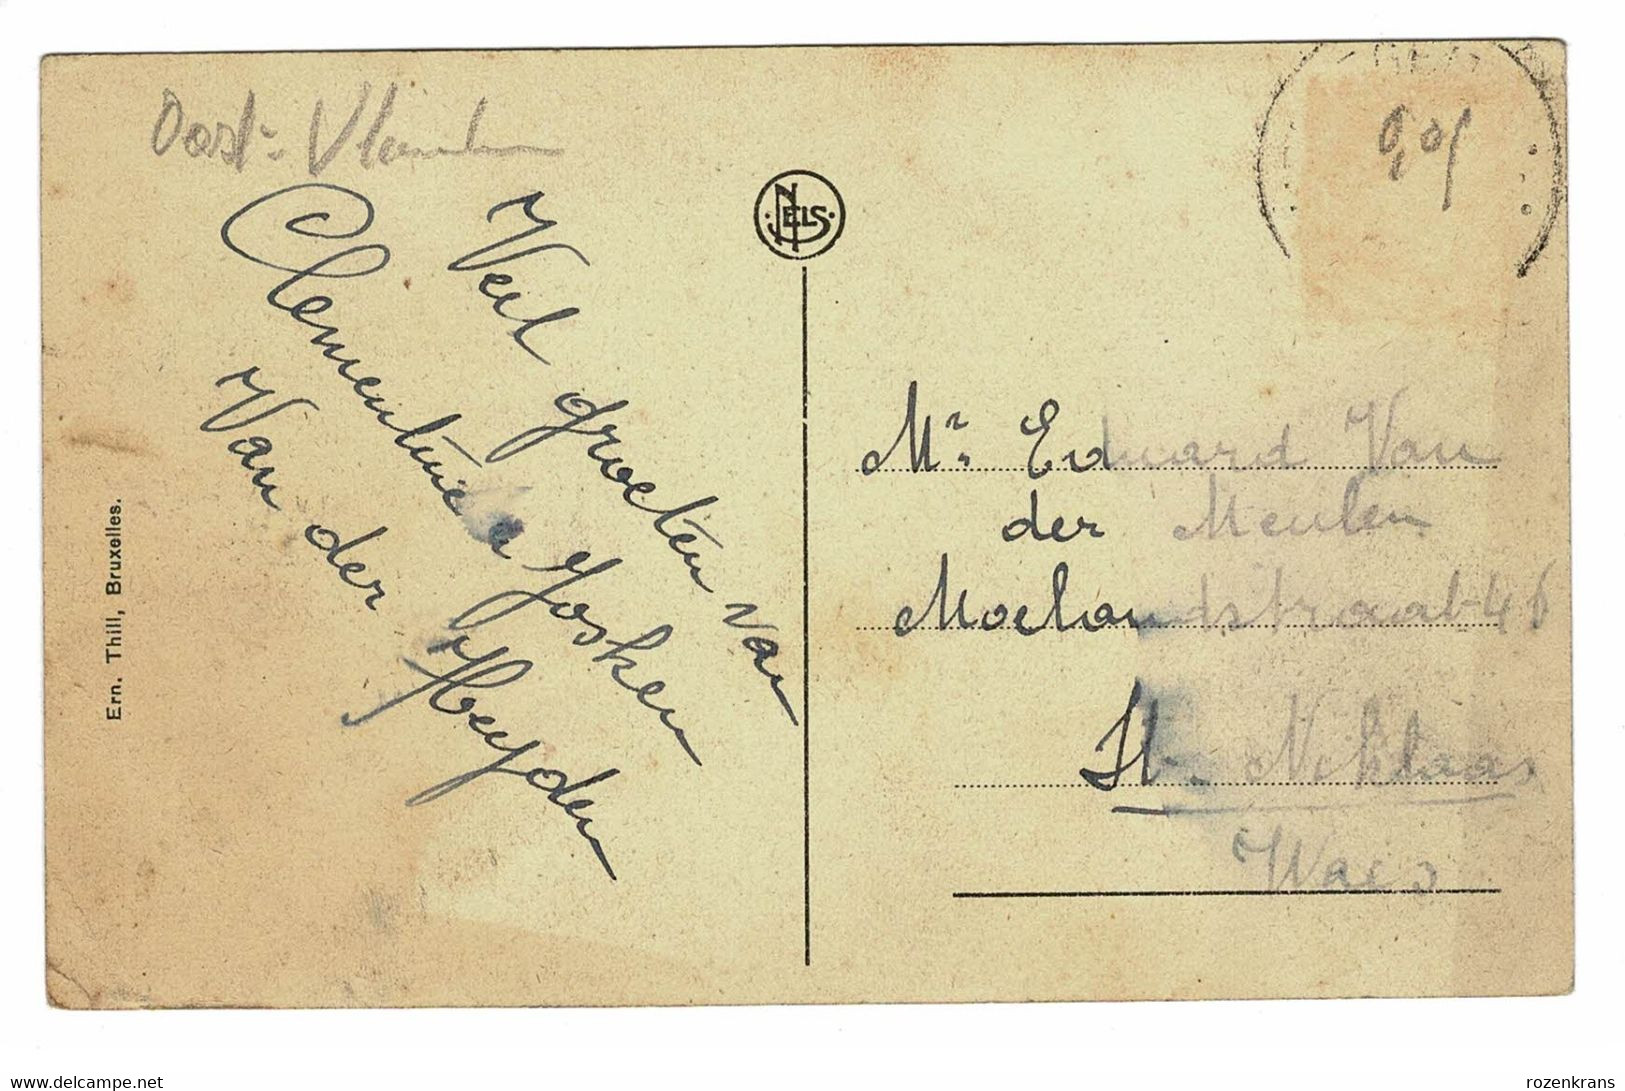 Oost-Vlaanderen
Veel groeten van
Clementine & Josken
Van der Heyden
Ern. Thill, Bruxelles.
NELS
0,05
Mr. Eduard Van
der Meulen
Moelandstraat 46
St. Niklaas
Waes
rozenkrans
www.delcampe.net